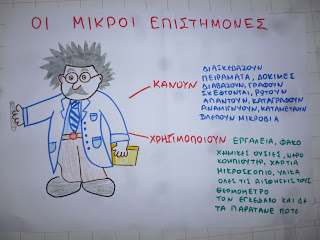 ΟΙ ΜΙΚΡΟΙ ΕΠΙΣΤΗΜΟΝΕΣ
ΚΑΝΟΥΝ
ΔΙΑΣΚΕΔΑΖΟΥΝ
ΠΕΙΡΑΜΑΤΑ, ΔΟΚΙΜΕΣ
ΔΙΑΒΑΖΟΥΝ, ΓΡΑΦΟΥΝ
ΣΚΕΦΤΟΝΤΑΙ, ΡΩΤΟΥΝ
ΑΠΑΝΤΟΥΝ, ΚΑΤΑΓΡΑΦΟΥΝ
ΑΝΑΜΙΓΝΥΟΥΝ, ΚΑΤΑΜΕΤΡΟΥΝ
ΒΛΕΠΟΥΝ ΜΙΚΡΟΒΙΑ
ΧΡΗΣΙΜΟΠΟΙΟΥΝ
ΕΡΓΑΛΕΙΑ, ΦΑΚΟ
ΧΗΜΙΚΕΣ ΟΥΣΙΕΣ, ΝΕΡΟ
ΚΟΜΠΙΟΥΤΕΡ, ΧΑΡΤΙΑ
ΜΙΚΡΟΣΚΟΠΙΟ, ΥΛΙΚΑ
ΟΛΕΣ ΤΙΣ ΑΙΣΘΗΣΕΙΣ ΤΟΥΣ
ΘΕΡΜΟΜΕΤΡΟ
ΤΟΝ ΕΓΚΕΦΑΛΟ ΚΑΙ ΔΕ
ΤΑ ΠΑΡΑΤΑΝΕ ΠΟΤΕ